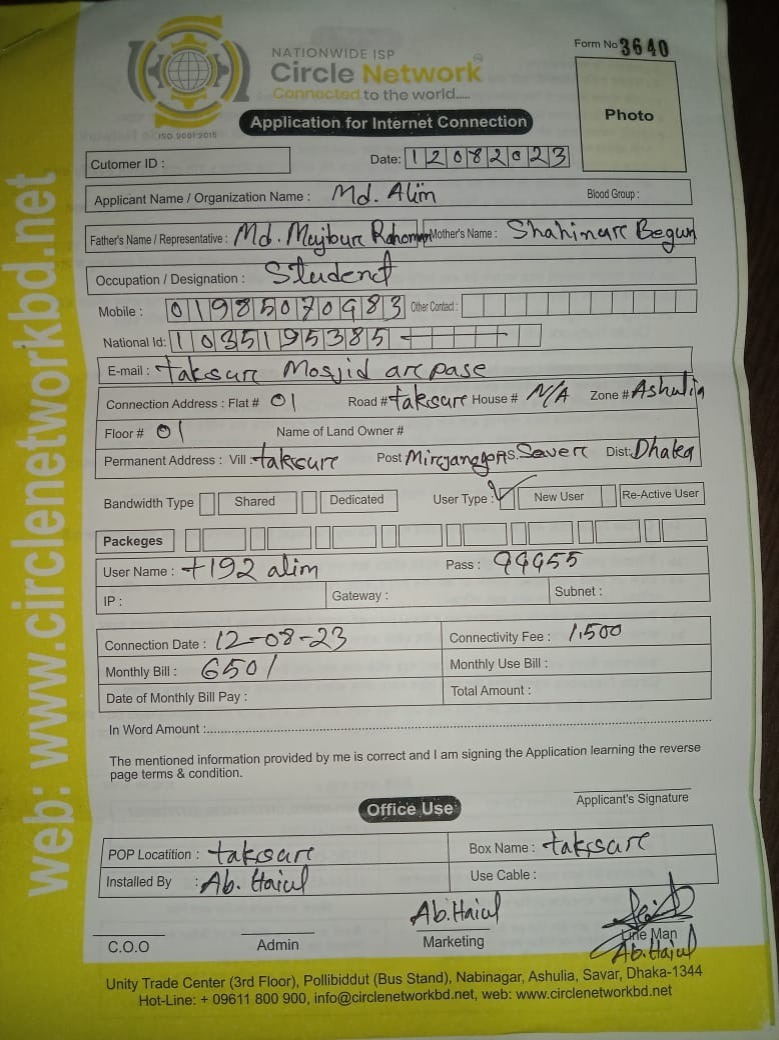 NATIONWIDE ISP
Circle Network
Connected to the world.....
ISO 9001:2015
Form No 3640
Photo
Application for Internet Connection
Cutomer ID :
Date: 12082023
Applicant Name / Organization Name : Md. Alim Blood Group :
Father's Name / Representative : Md. Mojibure Rahoman Mother's Name : Shahinure Begum
Occupation / Designation : Student
Mobile : 01985070983 Other Contact :
National Id: 1035195385
E-mail : taksure Mosjid arepase
Connection Address : Flat # 01 Road # taksure House # N/A Zone # Ashulia
Floor # 01 Name of Land Owner #
Permanent Address : Vill : taksure Post PS. Savere Dist: Dhaka
Bandwidth Type Shared Dedicated User Type : New User Re-Active User
Packeges
User Name : +192 alim Pass :
IP : Gateway : Subnet :
Connection Date : 12-08-23 Connectivity Fee : 1,500
Monthly Bill : 650/ Monthly Use Bill :
Date of Monthly Bill Pay : Total Amount :
In Word Amount :
The mentioned information provided by me is correct and I am signing the Application learning the reverse
page terms & condition.
Applicant's Signature
Office Use
POP Locatition : taksure Box Name : taksure
Installed By : Ab. Haiul Use Cable :
Ab. Haiul
C.O.O Admin Marketing Line Man
Ab. Haiul
Unity Trade Center (3rd Floor), Pollibiddut (Bus Stand), Nabinagar, Ashulia, Savar, Dhaka-1344
Hot-Line: + 09611 800 900, info@circlenetworkbd.net, web: www.circlenetworkbd.net
web: www.circlenetworkbd.net